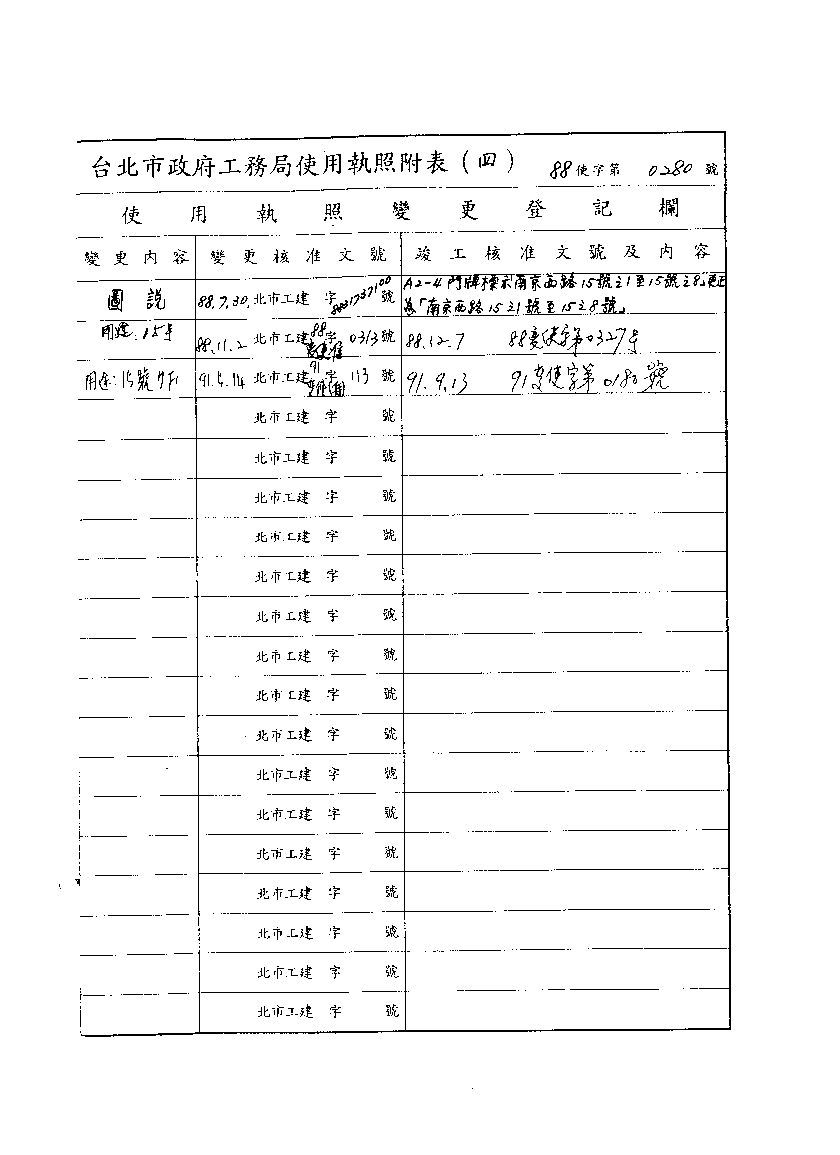 台北市政府工務局使用執照附表(四) 88使字第 0280 號
使用執照變更登記欄
變更內容 變更核准文號 竣工核准文號及內容
圖說 88.7.30.北市工建 字 8831737100 號 A2-4門牌標示南京西路15號之1至15號之8」更正
為「南京西路15之1號至15之8號」
用途:15号 88.11.2 北市工建 88 字 0313 號 88.12.7 88變使字第0327号
用途:15號7F1 91.5.14 北市工建 91 字 113 號 91.9.13 91變使字第0180號
北市工建 字 號
北市工建 字 號
北市工建 字 號
北市工建 字 號
北市工建 字 號
北市工建 字 號
北市工建 字 號
北市工建 字 號
北市工建 字 號
北市工建 字 號
北市工建 字 號
北市工建 字 號
北市工建 字 號
北市工建 字 號
北市工建 字 號
北市工建 字 號